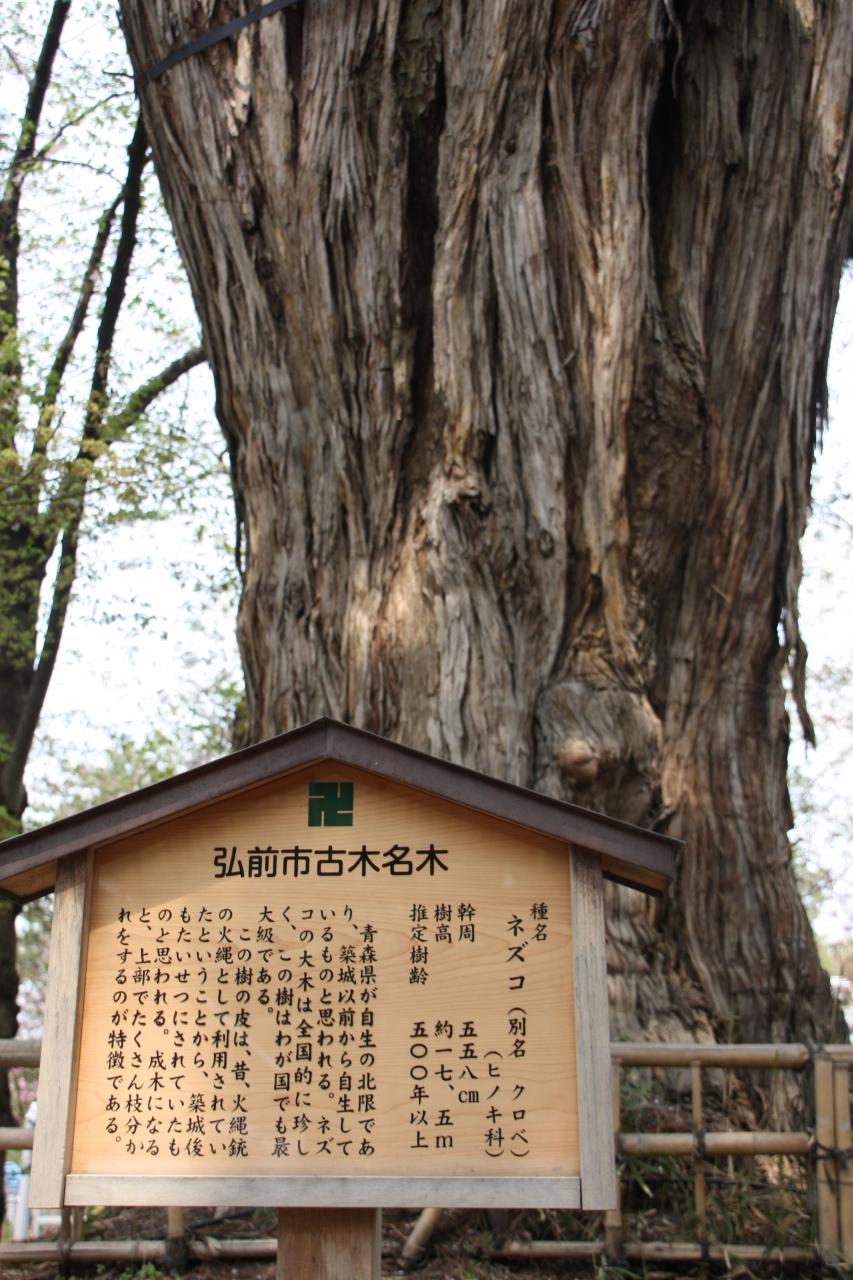 卍
弘前市古木名木
種名
ネズコ（別名　クロベ）
（ヒノキ科）
幹周　五五八cm
樹高　約一七、五m
推定樹齢　五〇〇年以上
青森県が自生の北限であ
り、築城以前から自生して
いるものと思われる。ネズ
コの大木は全国的に珍し
く、この樹はわが国でも最
大級である。
この樹の皮は、昔、火縄銃
の火縄として利用されてい
たということから、築城後
もたいせつにされていたも
のと思われる。成木になる
と、上部でたくさん枝分か
れをするのが特徴である。